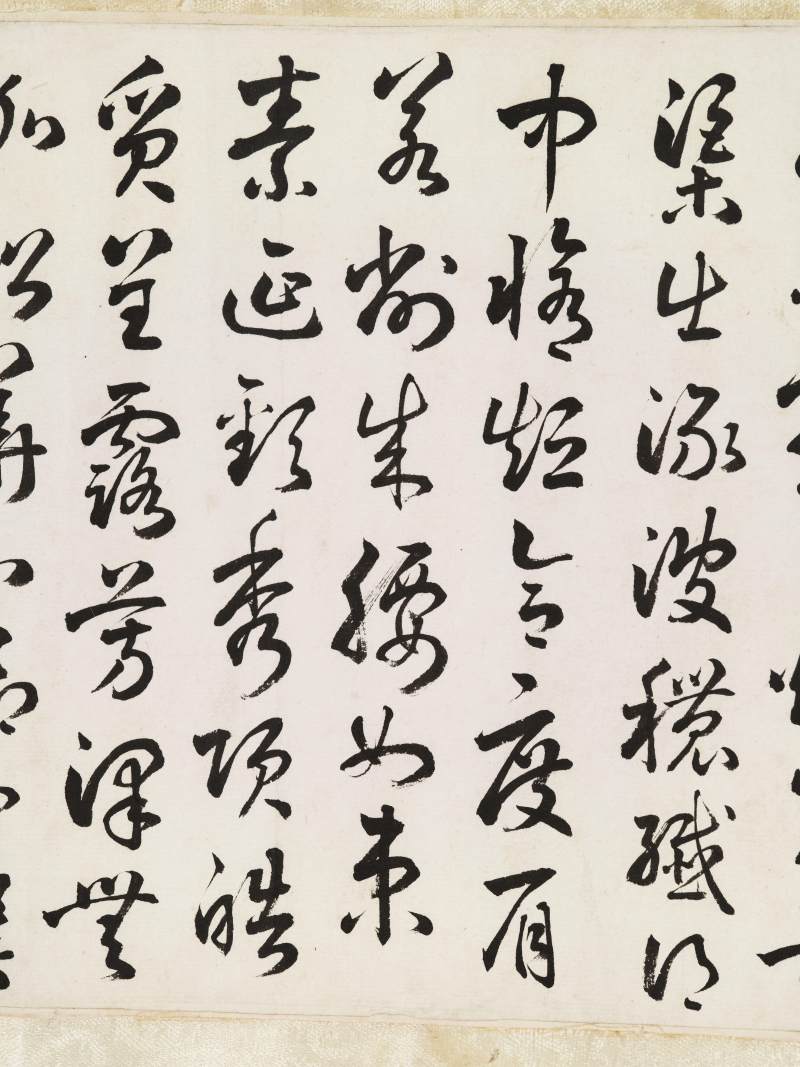 渠出淥波穠纖得
中脩短合度肩
若削成腰如束
素延頸秀項皓
質呈露芳澤無
加鉛華